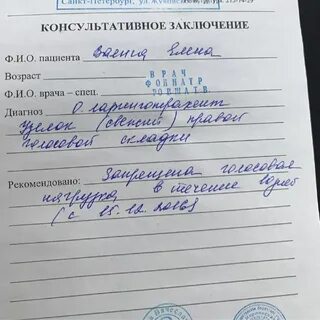 Санкт-Петербург, ул.
КОНСУЛЬТАТИВНОЕ ЗАКЛЮЧЕНИЕ
Ф.И.О. пациента Ваенга Елена
Возраст
ВРАЧ
ФОНИАТР
Ф.И.О. врача – спец.
Диагноз О ларинготрахеит
Узелок (свежий) правой
голосовой складки
Рекомендовано: Запрещена голосовая
нагрузка в течение
(с 15.12.2016)